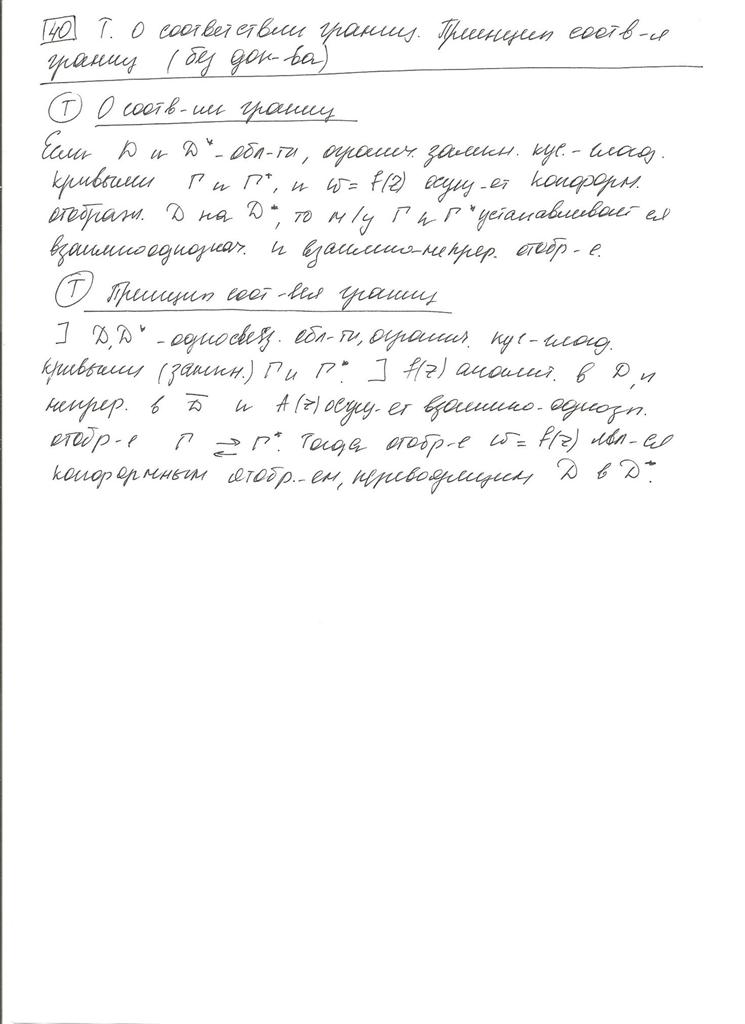 40 Т. О соответствии границ. Принцип соотв-я
границ (без док-ва)
Т О соотв-ии границ
Если D и D* - обл-ти, огранич. замкн. кус.-глад.
кривыми Г и Г*, и w = f(z) осущ-ет конформ.
отображ. D на D*, то м/у Г и Г* устанавливается
взаимнооднознач. и взаимно-непрер. отобр-е.
Т Принцип соот-вия границ
] D, D* - односвяз. обл-ти, огранич. кус-глад.
кривыми (замкн.) Г и Г*. ] f(z) аналит. в D, и
непрер. в D̅ и f(z) осущ-ет взаимно-однозн.
отобр-е Г ⇄ Г*. Тогда отобр-е w = f(z) явл-ся
конформным отобр-ем, переводящим D в D*.